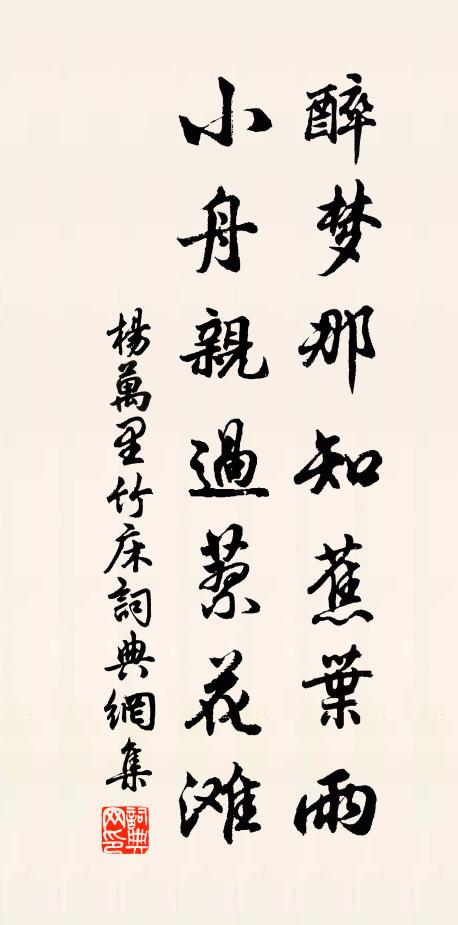 醉梦那知蕉葉雨
小舟親過蓼花滩
楊萬里竹床詞典網集
詞典网印